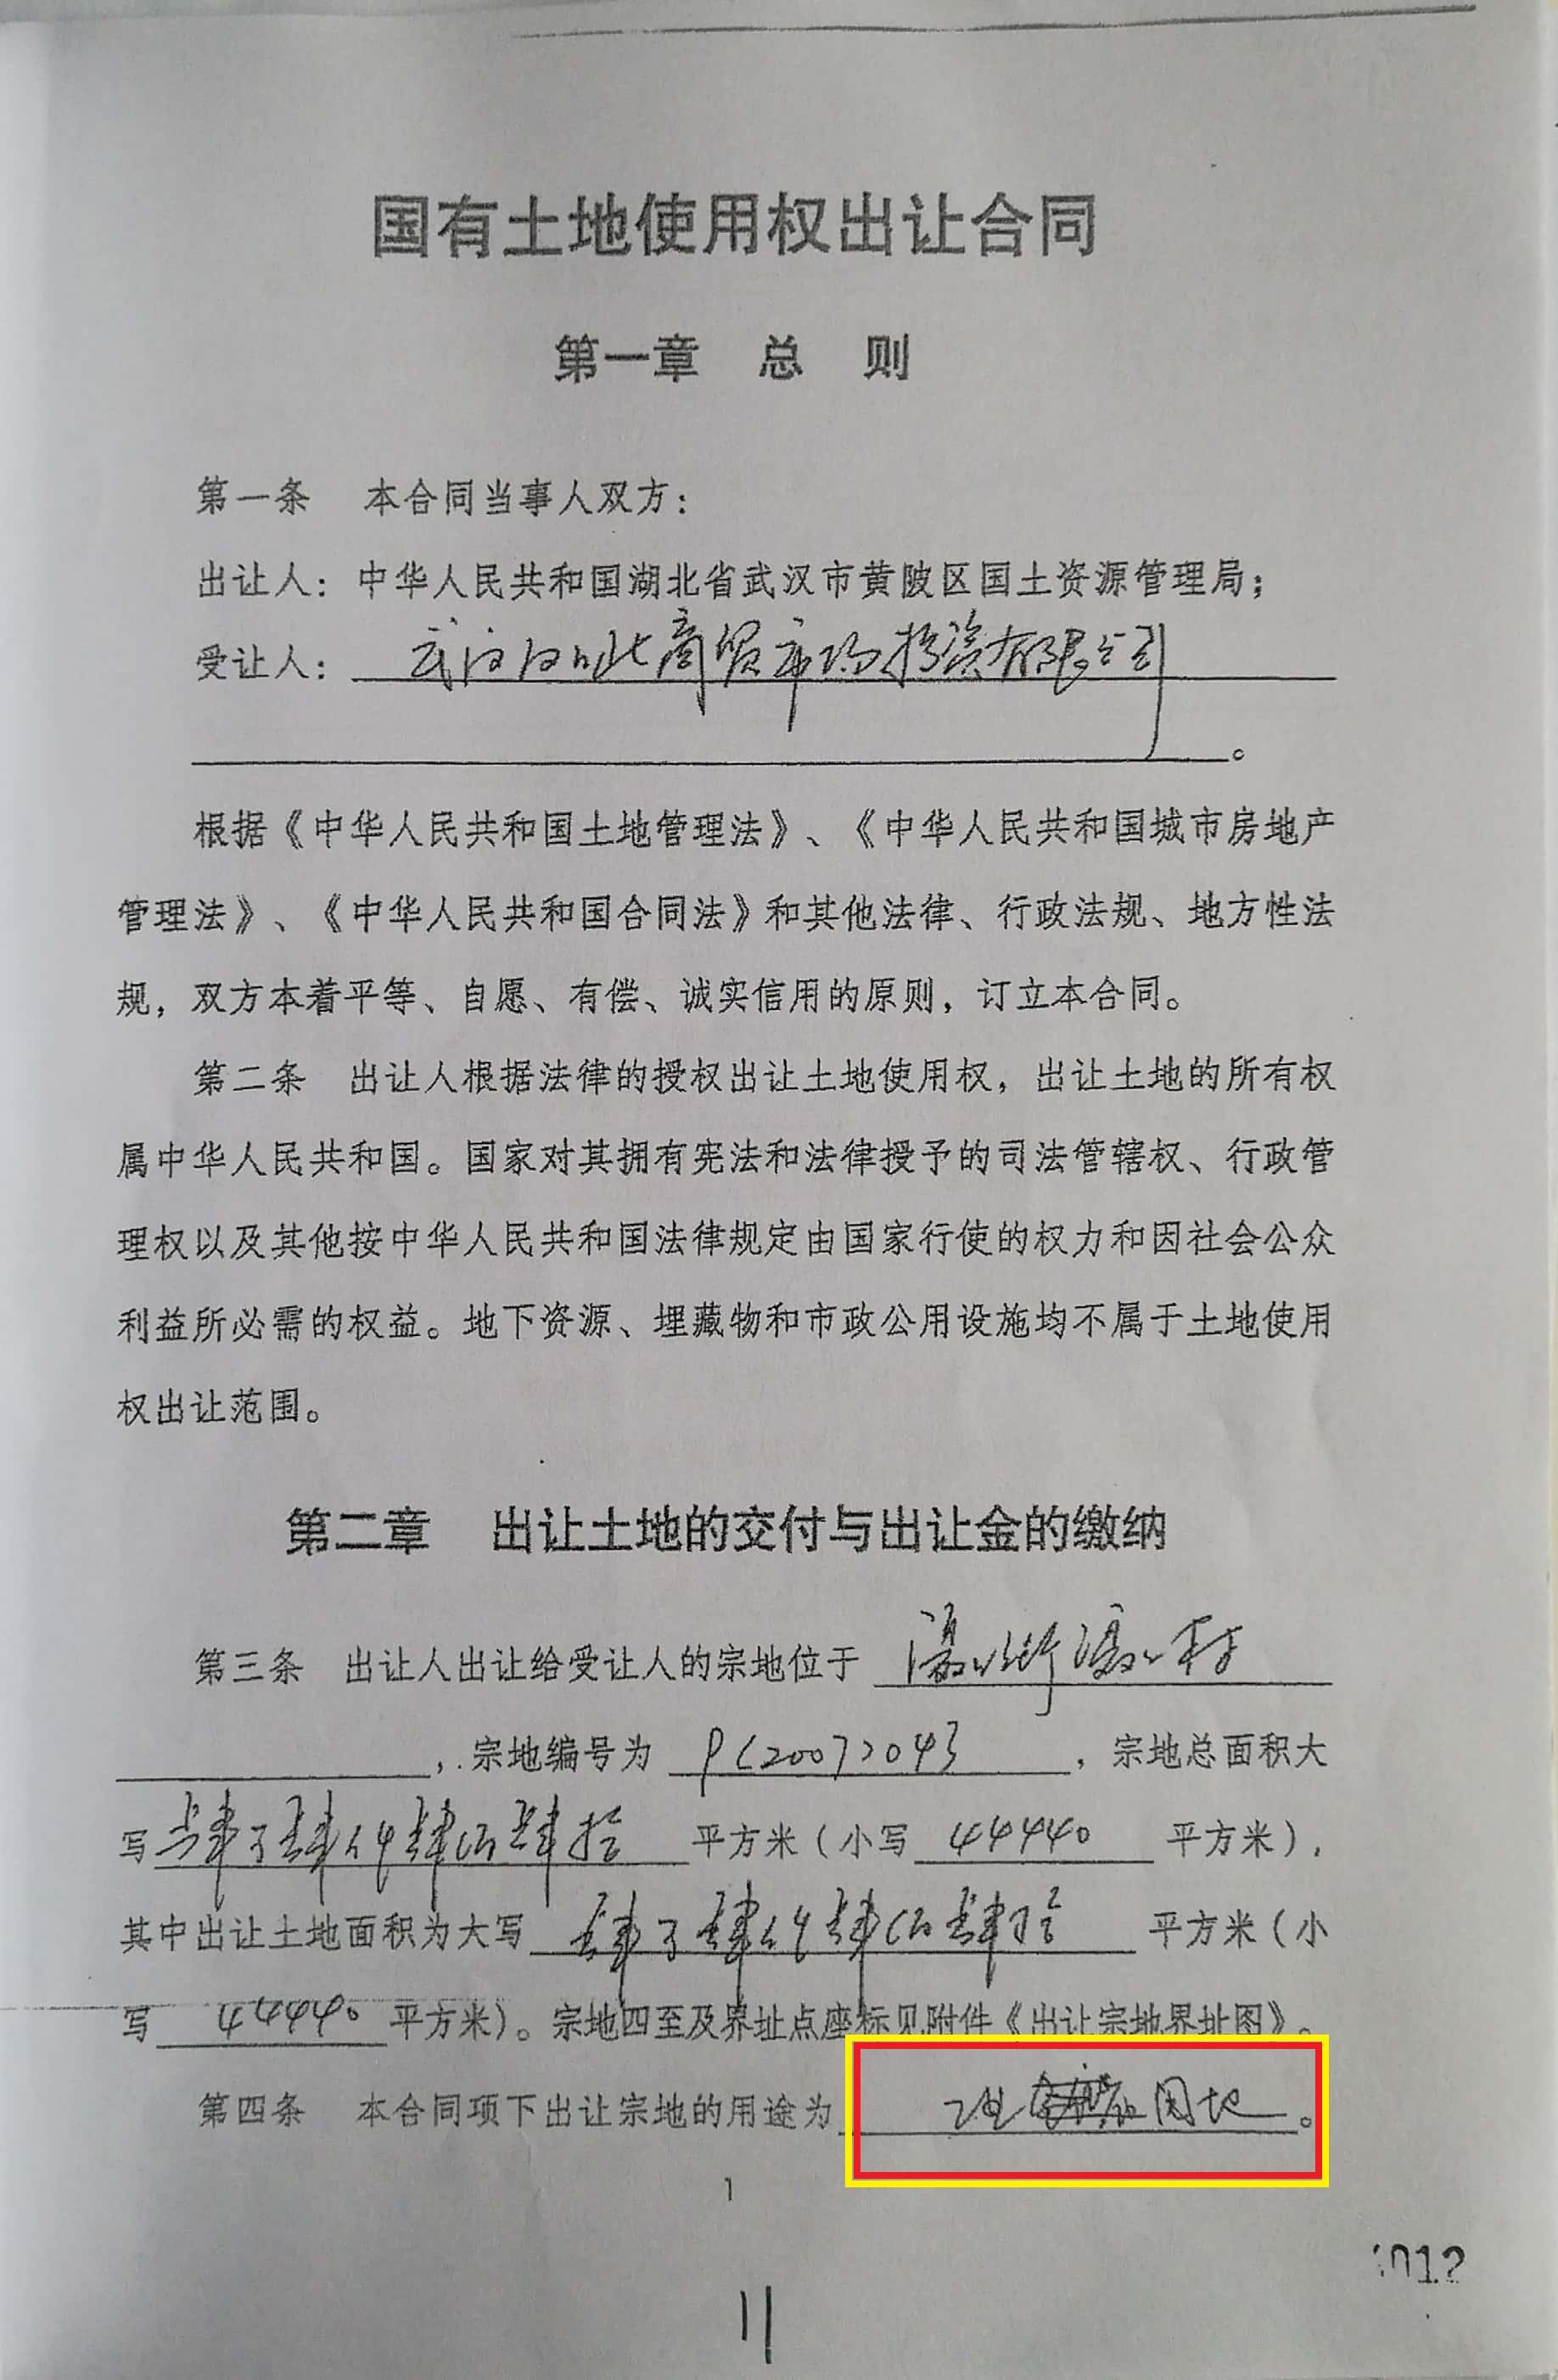 国有土地使用权出让合同
第一章 总 则
第一条 本合同当事人双方：
出让人：中华人民共和国湖北省武汉市黄陂区国土资源管理局；
受让人：武汉汉口北商贸市场投资有限公司
。
根据《中华人民共和国土地管理法》、《中华人民共和国城市房地产
管理法》、《中华人民共和国合同法》和其他法律、行政法规、地方性法
规，双方本着平等、自愿、有偿、诚实信用的原则，订立本合同。
第二条 出让人根据法律的授权出让土地使用权，出让土地的所有权
属中华人民共和国。国家对其拥有宪法和法律授予的司法管辖权、行政管
理权以及其他按中华人民共和国法律规定由国家行使的权力和因社会公众
利益所必需的权益。地下资源、埋藏物和市政公用设施均不属于土地使用
权出让范围。
第二章 出让土地的交付与出让金的缴纳
第三条 出让人出让给受让人的宗地位于 滠口街滠口村
，宗地编号为 P(2007)043 ，宗地总面积大
写 肆万肆仟肆佰肆拾 平方米（小写 44440 平方米），
其中出让土地面积为大写 肆万肆仟肆佰肆拾 平方米（小
写 44440 平方米）。宗地四至及界址点座标见附件《出让宗地界址图》。
第四条 本合同项下出让宗地的用途为 用地 。
1
11
012